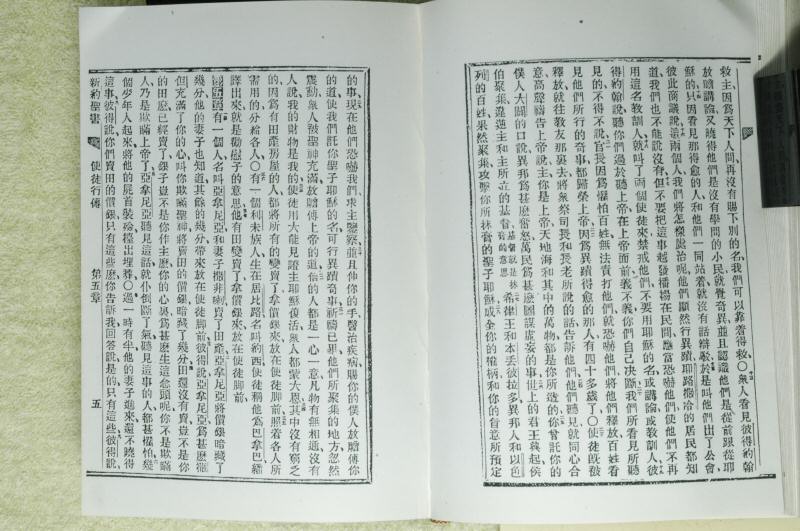 救主、因爲天下人間再沒有賜下別的名、我們可以靠着得救、○衆人看見彼得約翰
放膽講論、又曉得他們是沒有學問的小民、就覺奇異、並且認識他們是從前跟從耶
穌的、只因看見那得愈的人和他們一同站着、就沒有話辯駁、於是叫他們出了公會、
彼此商議說、這兩個人我們將怎樣處治呢、他們顯然行異蹟、耶路撒冷的居民都知
道、我們也不能說沒有、但不要把這事越發播揚在民間、應當恐嚇他們、使他們不再
用這名敎訓人、就叫了兩個使徒來、禁戒他們、不要用耶穌的名、或講論或敎訓人、彼
得約翰說、聽你們過於聽上帝、在上帝面前義不義、你們自己決斷、我們所看見所聽
見的、不得不說、官長因爲懼怕百姓、無法責打他們、就恐嚇他們、將他們釋放、百姓看
見他們所行的奇事、都歸榮上帝、因爲異蹟得愈的那人有四十多歲了、○使徒旣被
釋放、就往敎友那裏去、將衆祭司長和長老所說的話告訴他們、他們聽見就同心合
意高聲禱告上帝說、主你是上帝、天地海和其中的萬物都是你所造的、你曾託你的
僕人大闢的口說、異邦爲甚麼奮怒、萬民爲甚麼圖謀虛妄的事、世上的君王興起、侯
伯聚集、違逆主和主所立的基督、希律王和本丟彼拉多、異邦人和以色
列的百姓、果然聚集攻擊你所抹膏的聖子耶穌、成全你的權柄和你的旨意所預定
的事、現在他們恐嚇我們、求主鑒察、並且伸你的手醫治疾病、賜你的僕人放膽傳你
的道、使我們託你聖子耶穌的名、可行異蹟奇事、祈禱已畢、他們所聚集的地方忽然
震動、衆人被聖神充滿、放膽傳上帝的道、信的人都是一心一意、凡物有無相通、沒有
人說我的財物是我的、使徒用大能見證主耶穌復活、衆人都蒙大恩、其中沒有窮乏
的、因爲有田產房屋的人、都將所有的變賣了、拿價銀來放在使徒脚前、照着各人所
需用的分給各人、○有一個利未族人、生在居比路、名叫約西、使徒稱他爲巴拿巴、繙
譯出來就是勸慰子的意思、他有田變賣了、拿價銀來放在使徒脚前、
第五章 有一個人名叫亞拿尼亞、和妻子撒非喇、賣了田產、亞拿尼亞將價銀暗藏了
幾分、他的妻子也知道、其餘的幾分帶來放在使徒脚前、彼得說、亞拿尼亞爲甚麼撒
但充滿了你的心、叫你欺瞞聖神、將賣田的價銀暗藏了幾分、田還沒有賣、豈不是你
的田麼、已經賣了、銀子豈不是你作主麼、你的心裏爲甚麼生這念頭呢、你不是欺瞞
人、乃是欺瞞上帝了、亞拿尼亞聽見這話、就仆倒斷了氣、聽見這事的人都甚懼怕、幾
個少年人起來、將他的屍首裝殮、擡出埋葬、○過一時有半、他的妻子進來、還不曉得
這事、彼得說、你們賣田的價銀、只有這些麼、你告訴我、回答說、是的、只有這些、彼得說、
新約聖書 使徒行傳 第五章 五